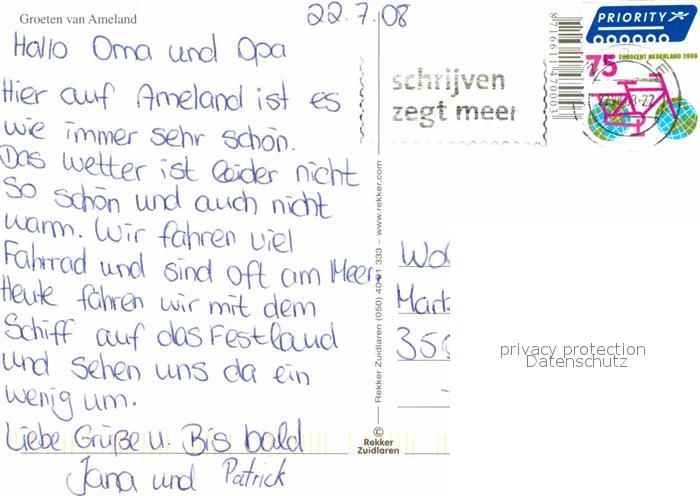 Groeten van Ameland
22.7.08
Hallo Oma und Opa
Hier auf Ameland ist es
wie immer sehr schön.
Das Wetter ist leider nicht
so schön und auch nicht
warm. Wir fahren viel
Fahrrad und sind oft am Meer.
Heute fahren wir mit dem
Schiff auf das Festland
und sehen uns da ein
wenig um.
Liebe Grüße u. Bis bald
Jana und Patrick
schrijven
zegt meer
8716611470003
PRIORITY
75
EUROCENT NEDERLAND 2008
— Rekker Zuidlaren (050) 40 91 333 – www.rekker.com
©
Rekker
Zuidlaren
350
privacy protection
Datenschutz